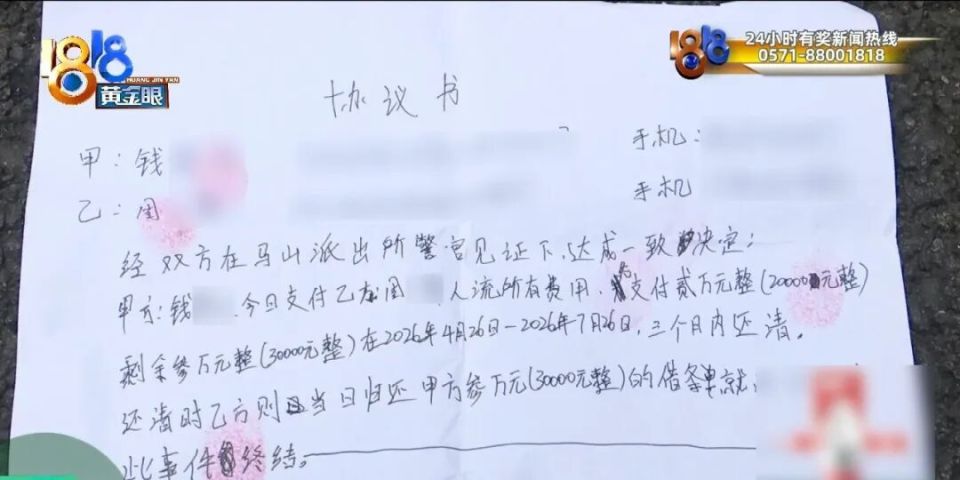 1818
HUANG JIN YAN
黄金眼
1818
24小时有奖新闻热线
0571-88001818
协议书
甲：钱
手机：
乙：周
手机
经双方在马山派出所警官见证下,达成一致决定：
甲方:钱 ,今日支付乙方周 ,人流所有费用,支付贰万元整(20000元整)
剩余叁万元整(30000元整)在2026年4月26日-2026年7月26日,三个月内还清。
还清时乙方则当日归还甲方叁万元(30000元整)的借条单就
此事件终结。